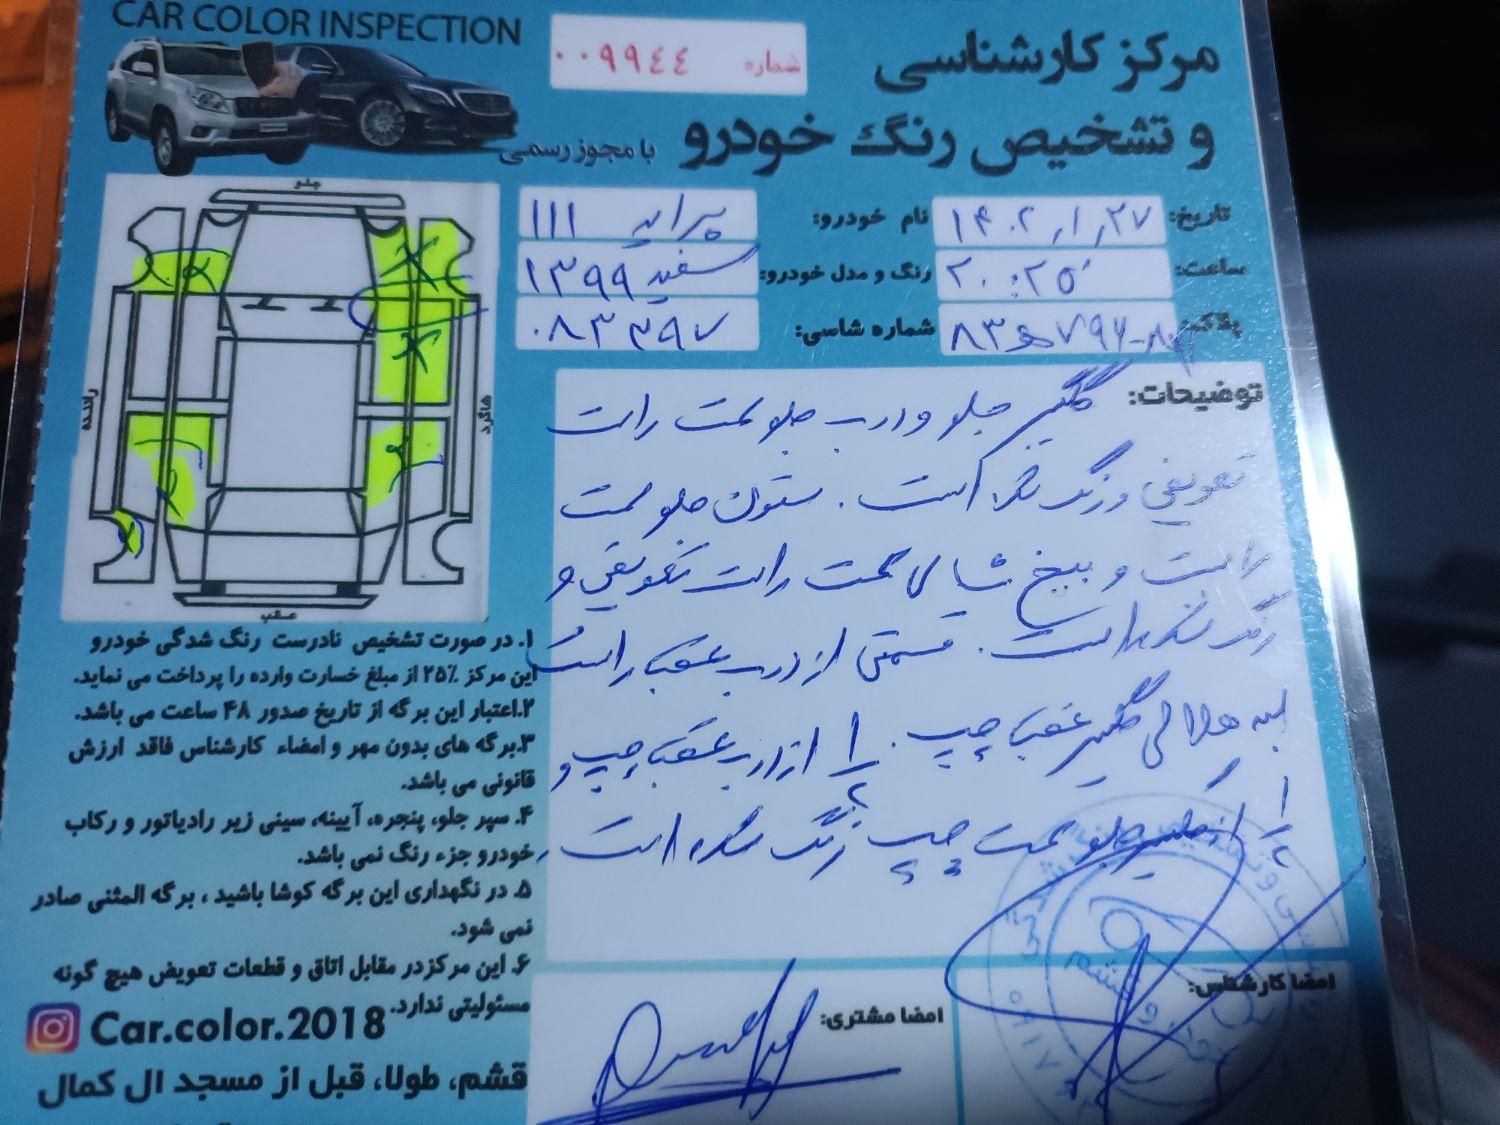 CAR COLOR INSPECTION
شماره ۰۰۹۹۴۴
مرکز کارشناسی
و تشخیص رنگ خودرو با مجوز رسمی
تاریخ: ۱۴۰۲/۱/۲۷ نام خودرو: پراید ۱۱۱
ساعت: ۲۰:۲۵ رنگ و مدل خودرو: سفید ۱۳۹۹
پلاک: شماره شاسی: ۰۸۳۳۹۷
جلو
راننده
شاگرد
عقب
توضیحات: گلگیر جلو و درب جلو سمت راست
تعویض و رنگ شده است. ستون جلو سمت
راست و بیخ شاسی سمت راست تعویض و
رنگ شده است. قسمتی از درب عقب راست
لبه هلالی گلگیر عقب چپ. ۱/۲ از درب عقب چپ و
۱/۲ از گلگیر جلو سمت چپ رنگ شده است.
۱. در صورت تشخیص نادرست رنگ شدگی خودرو
این مرکز ۲۵٪ از مبلغ خسارت وارده را پرداخت می نماید.
۲.اعتبار این برگه از تاریخ صدور ۴۸ ساعت می باشد.
۳.برگه های بدون مهر و امضاء کارشناس فاقد ارزش
قانونی می باشد.
۴. سپر جلو، پنجره، آیینه، سینی زیر رادیاتور و رکاب
خودرو جزء رنگ نمی باشد.
۵. در نگهداری این برگه کوشا باشید ، برگه المثنی صادر
نمی شود.
۶. این مرکزدر مقابل اتاق و قطعات تعویض هیچ گونه
مسئولیتی ندارد.
Car.color.2018
قشم، طولا، قبل از مسجد ال کمال
امضا مشتری:
امضا کارشناس: